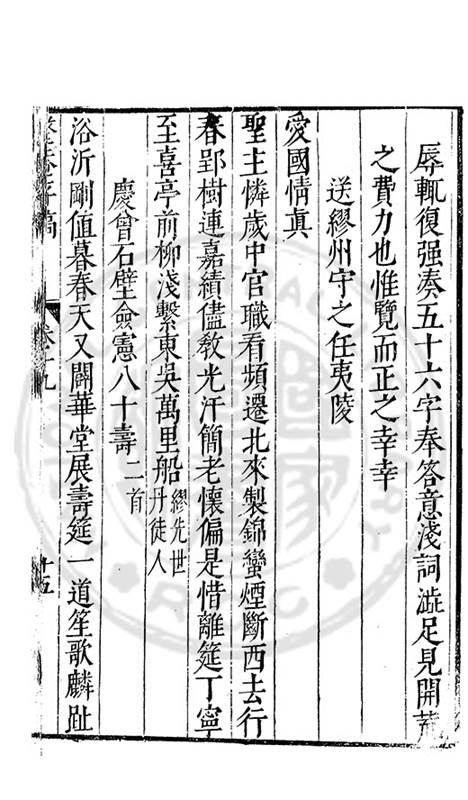 辱輒復强奏五十六字奉答意淺詞澁足見開荒
之費力也惟覽而正之幸幸
送繆州守之任夷陵
愛國情真
聖主憐歲中官職看頻遷北來製錦蠻煙斷西去行
春郢樹連嘉績儘教光汗簡老懷偏是惜離筵丁寧
至喜亭前柳淺繫東吳萬里船繆先世丹徒人
慶曾石壁僉憲八十壽二首
浴沂剛值暮春天又闢華堂展壽筵一道笙歌麟趾
存稿
卷十九
十五